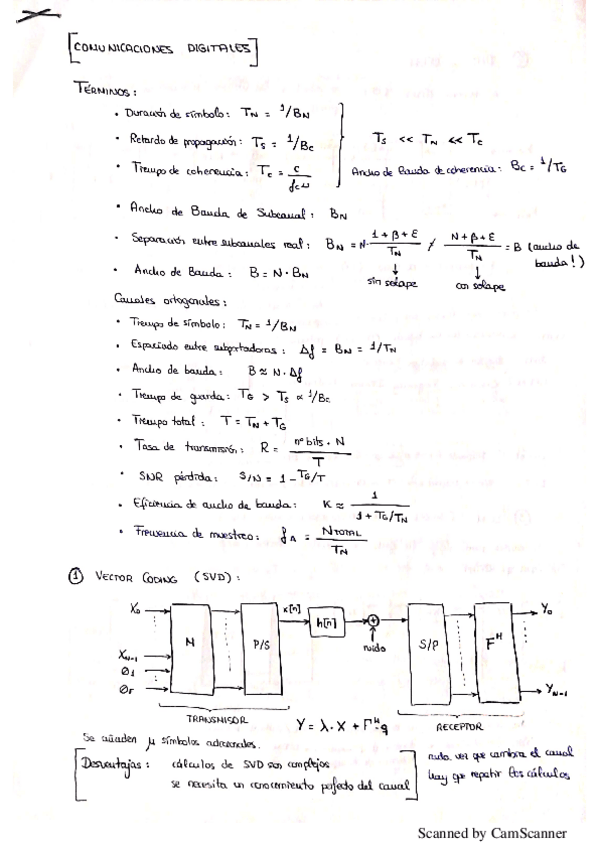 [COMUNICACIONES DIGITALES]
TÉRMINOS:
• Duración de símbolo: T_N = 1/B_N
• Retardo de propagación: T_S = 1/B_C
T_S << T_N << T_C
• Tiempo de coherencia: T_C = c / f_c v
Ancho de Banda de coherencia: B_C = 1/T_G
• Ancho de Banda de Subcanal: B_N
• Separación entre subcanales real: B_N = N · (1 + β + ε) / T_N / (N + β + ε) / T_N = B (ancho de banda!)
sin solape
con solape
• Ancho de Banda: B = N · B_N
Canales ortogonales:
• Tiempo de símbolo: T_N = 1/B_N
• Espaciado entre subportadoras: Δf = B_N = 1/T_N
• Ancho de banda: B ≈ N · Δf
• Tiempo de guarda: T_G > T_S ∝ 1/B_C
• Tiempo total: T = T_N + T_G
• Tasa de transmisión: R = nº bits · N / T
• SNR pérdida: S/N = 1 - T_G/T
• Eficiencia de ancho de banda: K ≈ 1 / (1 + T_G/T_N)
• Frecuencia de muestreo: f_A = N_TOTAL / T_N
① VECTOR CODING (SVD):
X_0
X_N-1
0_1
0_r
M
P/S
x[n]
h[n]
+
ruido
S/P
F^H
Y_0
Y_N-1
TRANSMISOR
Y = λ · X + Γ^H · q
RECEPTOR
Se añaden μ símbolos adicionales.
Desventajas: cálculos de SVD son complejos
se necesita un conocimiento perfecto del canal
cada vez que cambia el canal
hay que repetir los cálculos
Scanned by CamScanner